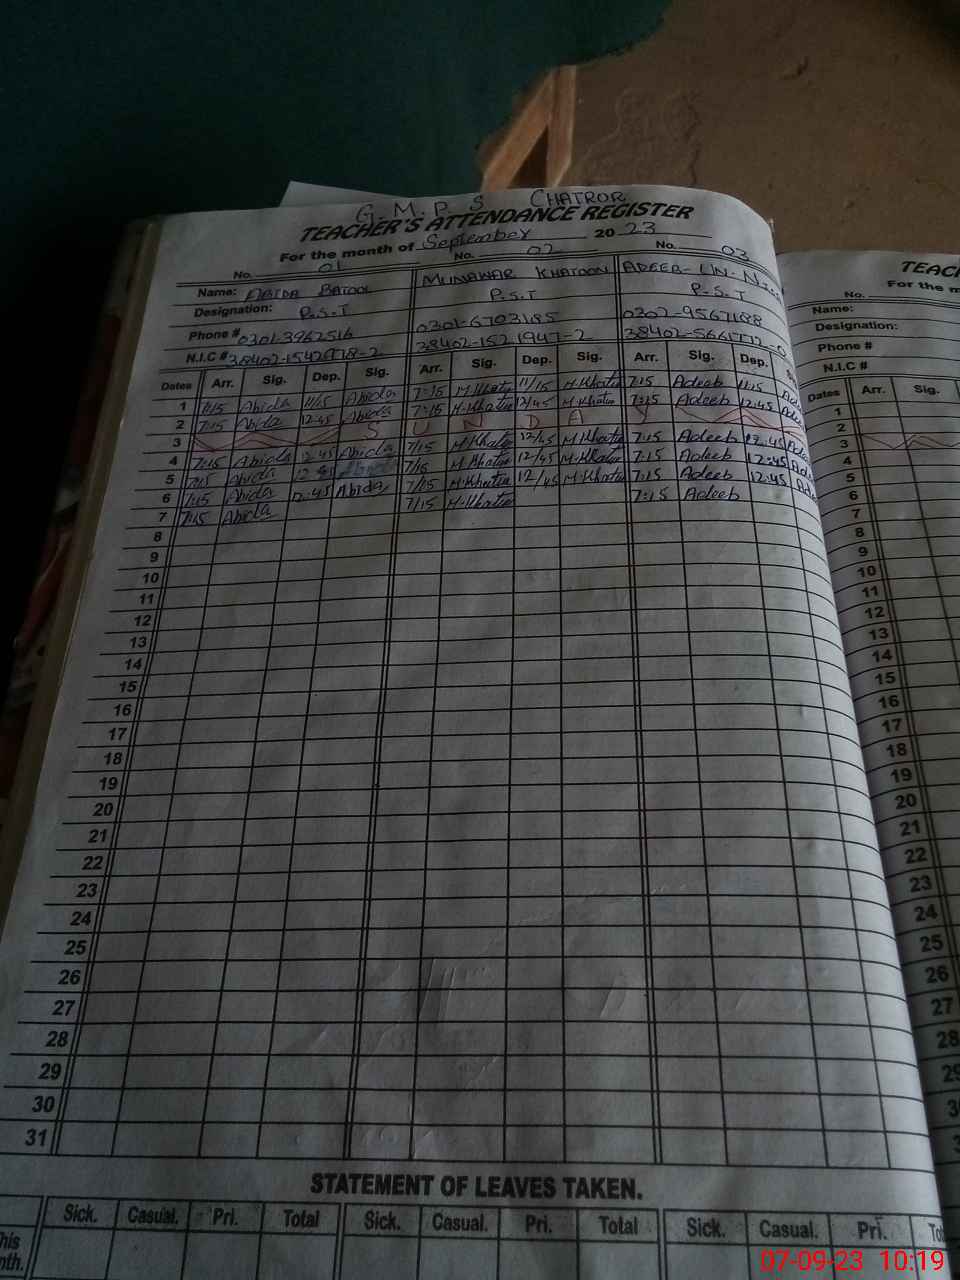 G.M.P.S CHATROR
TEACHER'S ATTENDANCE REGISTER
For the month of September 20 23
No. 01 No. 02 No. 03
Name: ABIDA BATOOL MUNAWAR KHATOON ADEEB-UN-
Designation: P.S.T P.S.T P.S.T
Phone # 0301-3962516 0301-6703185 0302-9567188
N.I.C # 38402-1542978-2 38402-1521947-2 38402-5661772-0
Dates Arr. Sig. Dep. Sig. Arr. Sig. Dep. Sig. Arr. Sig. Dep.
1 7:15 Abida 11/15 Abida 7:15 M.Khatun 11/15 M.Khatun 7:15 Adeeb 11:15
2 7:15 Abida 12:45 Abida 7:15 M.Khatun 12/45 M.Khatun 7:15 Adeeb 12:45 Adeeb
3 S U N D A Y
4 7:15 Abida 12:45 Abida 7/15 M.Khatun 12/45 M.Khatun 7:15 Adeeb 12:45
5 7:15 Abida 12:45 Abida 7/15 M.Khatun 12/45 M.Khatun 7:15 Adeeb 12:45
6 7:45 Abida 12:45 Abida 7/15 M.Khatun 12/45 M.Khatun 7:15 Adeeb 12:45
7 7:15 Abida 7/15 M.Khatun 7:15 Adeeb
8
9
10
11
12
13
14
15
16
17
18
19
20
21
22
23
24
25
26
27
28
29
30
31
STATEMENT OF LEAVES TAKEN.
Sick. Casual. Pri. Total Sick. Casual. Pri. Total Sick. Casual. Pri.
No.
Name:
Designation:
Phone #
N.I.C #
Dates Arr. Sig.
1
2
3
4
5
6
7
8
9
10
11
12
13
14
15
16
17
18
19
20
21
22
23
24
25
26
27
07-09-23 10:19